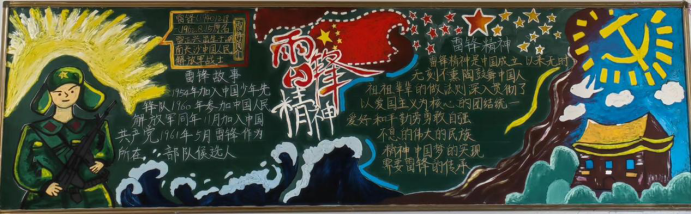 雷锋故事
1954年加入中国少年先
锋队1960年参加中国人民
解放军同年11月加入中国
共产党1961年5月雷锋作为
所在 部队候选人
雷锋
精神
雷锋精神
雷锋精神是中国成立以来无时
无刻不熏陶鼓舞中国人
祖祖辈辈的做法则深入贯彻了
以爱国主义为核心的团结统一
爱好和平勤劳勇敢自强
不息的伟大的民族
精神中国梦的实现
需要雷锋的传承